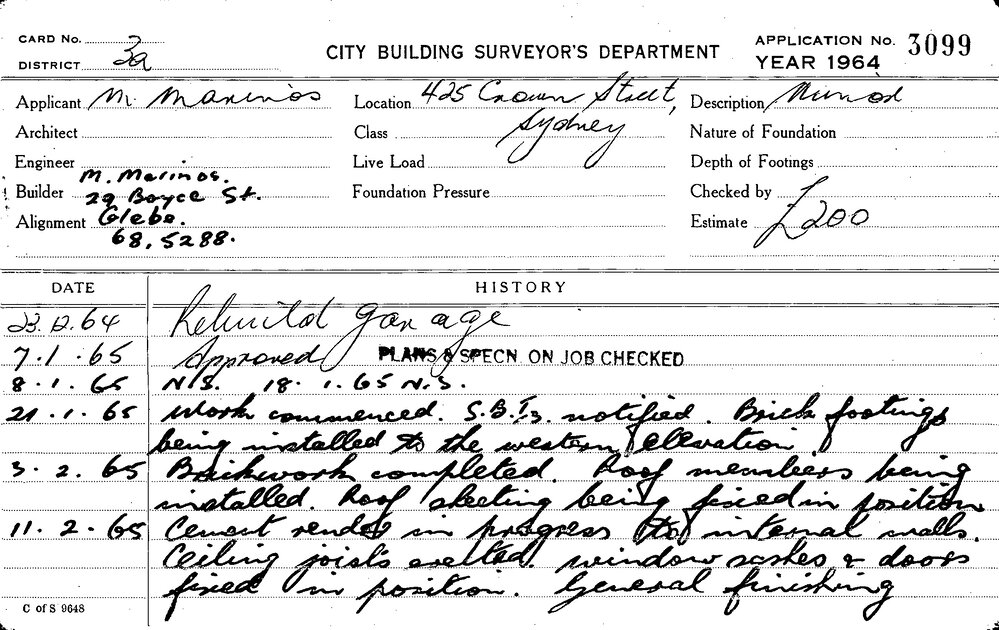 CARD No.
DISTRICT 3a
CITY BUILDING SURVEYOR'S DEPARTMENT
APPLICATION No. 3099
YEAR 1964
Applicant M. Marinos
Location 425 Crown Street,
Sydney
Description Minod
Architect
Class
Nature of Foundation
Engineer
Live Load
Depth of Footings
Builder M. Marinos.
29 Boyce St.
Glebe.
68.5288.
Foundation Pressure
Checked by
Alignment
Estimate £200
DATE HISTORY
23.12.64 Rebuild garage
7.1.65 Approved PLANS & SPECN. ON JOB CHECKED
8.1.65 N/S. 18.1.65 N.S.
21.1.65 Work commenced. S.B.I/3. notified. Brick footings
being installed to the western elevation
3.2.65 Brickwork completed. Roof members being
installed. Roof sheeting being fixed in position
11.2.65 Cement render in progress to internal walls.
Ceiling joists erected. window sashes & doors
fixed in position. General finishing
C of S 9648